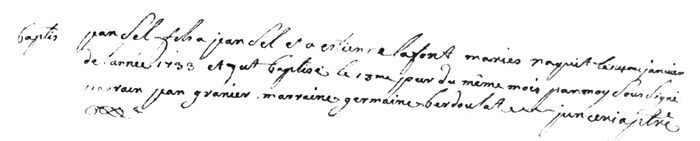 baptis jean sel fils a jean sel et a estienne lafont maries naquit le janvier
de l'année 1733 et fut baptisé le 15me jour du même mois par moy soussigné
parrain jean granier marraine germaine berdoulat ptre